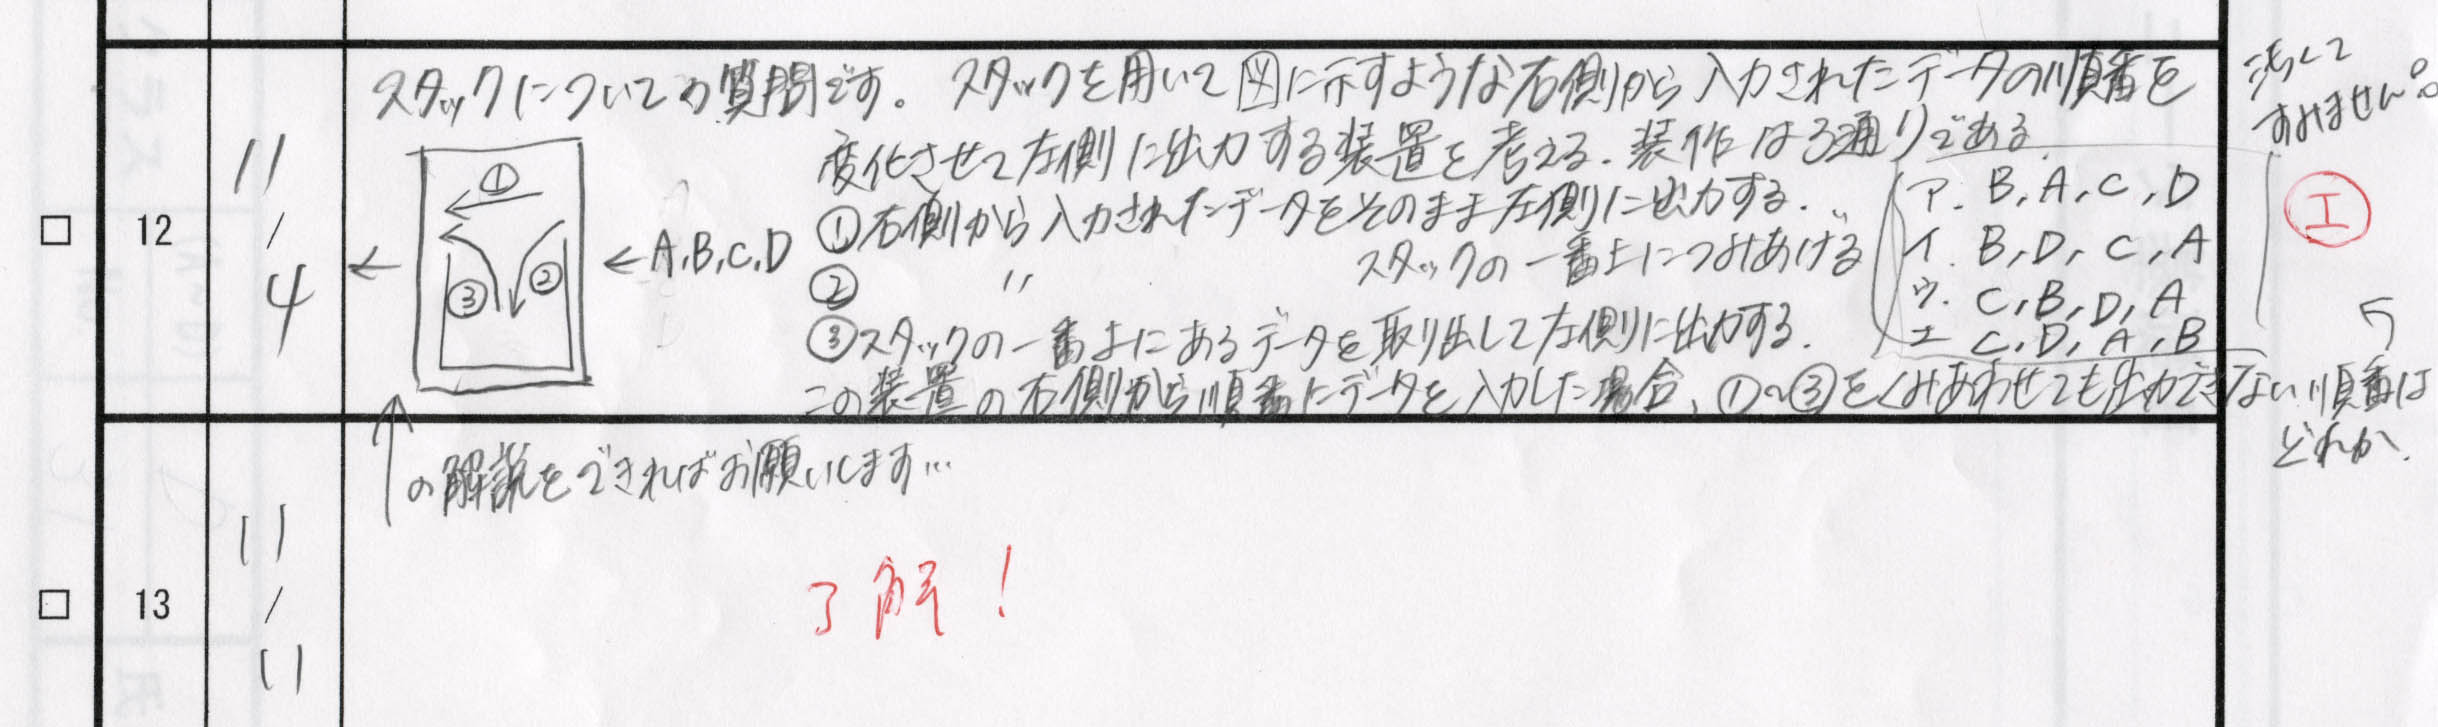 スタックについての質問です。 スタックを用いて図に示すような右側から入力されたデータの順番を
変化させて左側に出力する装置を考える. 装作は3通りである.
汚くて
すみません
12
11
/
4
①
②
③
← A,B,C,D
①右側から入力されたデータをそのまま左側に出力する.
② 〃 スタックの一番上につみあげる
③スタックの一番上にあるデータを取り出して左側に出力する.
ア. B, A, C, D
イ. B, D, C, A
ウ. C, B, D, A
エ C, D, A, B
エ
この装置の右側から順番にデータを入力した場合、①~③をくみあわせても出力できない順番は
どれか.
の解説をできればお願いします…
13
11
/
11
了解!